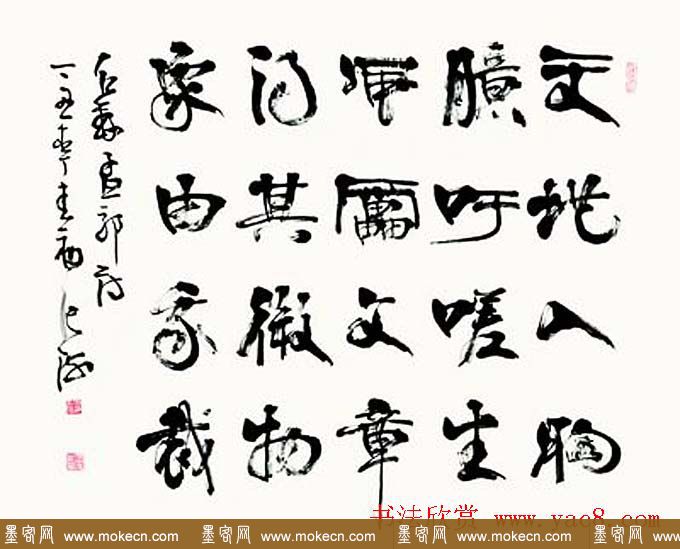 天地入胸
臆吁嗟生
風雷文章
得其微物
象由我裁
孟郊诗
书法欣赏 www.yac8.com
墨客网 www.mokecn.com 墨客网 www.mokecn.com 墨客网 www.mokecn.com 墨客网 www.mokecn.com